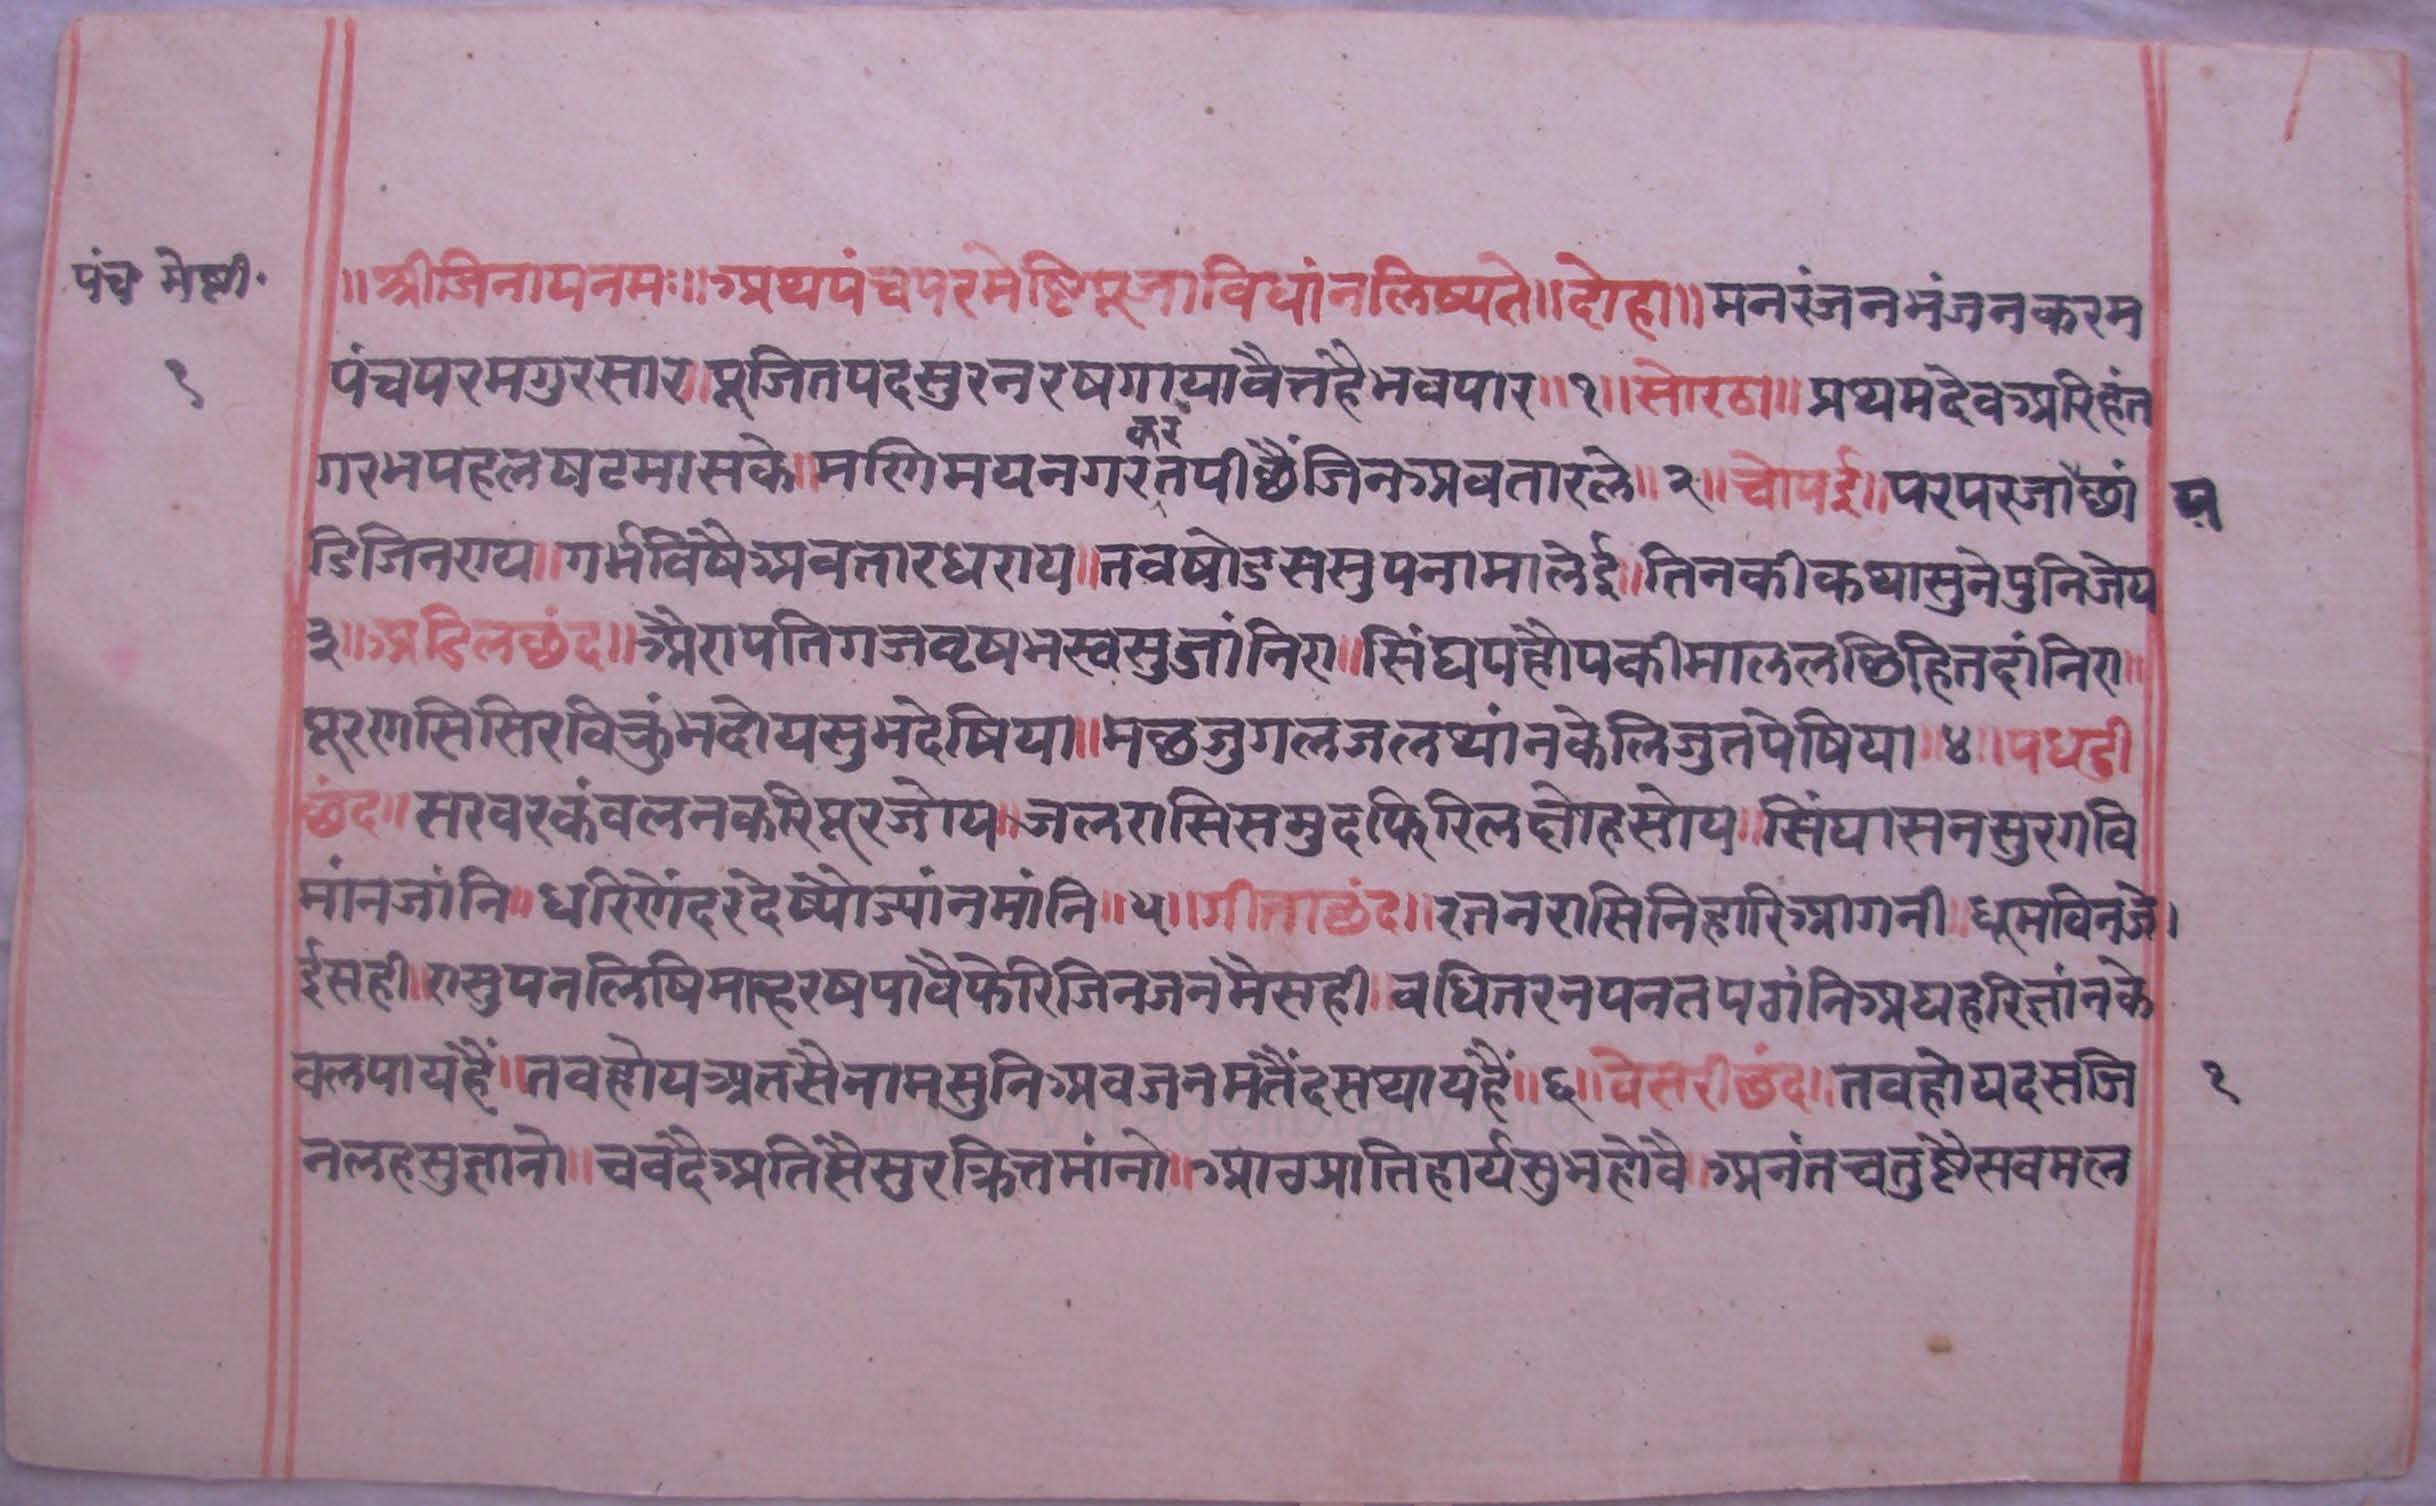 पंच मेष्टी.
१
॥श्रीजिनायनमः॥अथपंचपरमेष्टिपूजाविधांनलिष्यते॥दोहा॥मनरंजनभंजनकरम
पंचपरमगुरसार॥पूजितपदसुरनरषगापावैत्तहैभवपार॥१॥सोरठा॥प्रथमदेवअरिहंत
कर
गरभपहलषटमासके॥मणिमयनगरंतपीछैंजिनअवतारले॥२॥चोपई॥परपरजाैछां
प
डिजिनराय॥गर्भविषैअवतारधराय॥तवषोडससुपनामालेई॥तिनकीकथासुनेपुनिजेय
३॥अडिलछंद॥अैरापतिगजवृषभस्वसुजांनिरा॥सिंघपहौपकीमाललछिहितदांनिरा॥
पूरणससिरविकुंभदोयसुभदेषिया॥मछजुगलजलथांनकेलिजुतपेषिया॥४॥पधडी
छंद॥सरवरकंवलनकरिपूरजोय॥जलरासिसमुदफिरिलषोहसोय॥सिंघासनसुरगवि
मांनजांनि॥धरिणेंदरदेष्यौज्यांनमांनि॥५॥गीताछंद॥रतनरासिनिहारिआगनी॥धूमविनजे।
ईसही॥रासुपनलिषिमाहरषपावैफेरिजिनजनमैसही॥वधितरनपनतपठांनिअघहरिज्ञांनके
वलपायहैं॥तवहोयअतसैनामसुनिअवजनमतैंदसथायहैं॥६॥वेसरीछंद॥तवहोयदसजि
१
नलहसुज्ञानो॥चवदैअतिसैसुरक्रितमांनो॥आठप्रातिहार्यसुभहोवै॥अनंतचतुष्टैसवमल
www.vitragelibrary.org